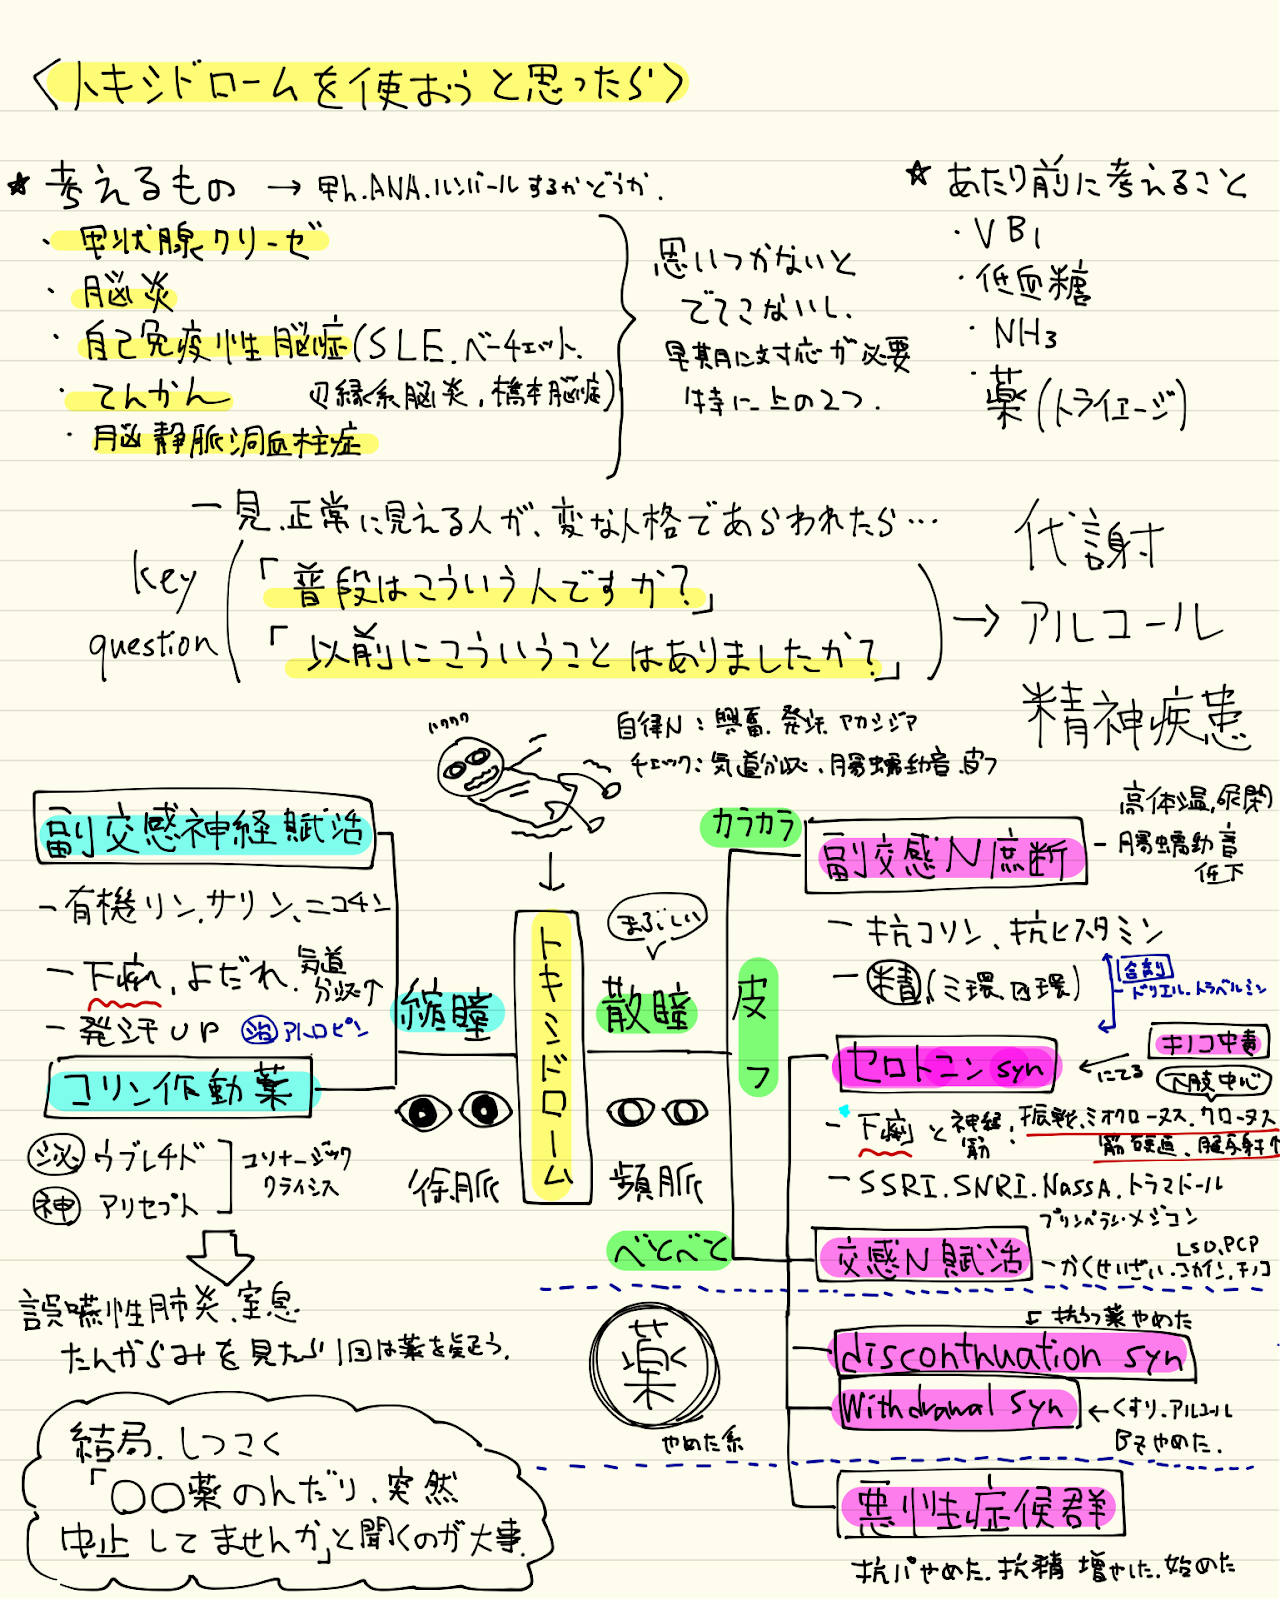 〈トキシドロームを使おうと思ったら〉
☆ 考えるもの → 甲h.ANA.ルンバールするかどうか.
・甲状腺クリーゼ
・脳炎
・自己免疫性脳症(SLE.ベーチェット.
辺縁系脳炎,橋本脳症)
・てんかん
・脳静脈洞血栓症
思いつかないと
でてこないし.
早期に対応が必要
特に上の2つ.
☆ あたり前に考えること
・VB1
・低血糖
・NH3
・薬(トライエージ)
一見.正常に見える人が、変な人格であらわれたら…
key
question
「普段はこういう人ですか?」
「以前にこういうことはありましたか?」
→ 代謝
アルコール
精神疾患
自律N:興奮.発汗.アカシジア
チェック:気道分泌.腸蠕動音.皮フ
副交感神経賦活
-有機リン.サリン、ニコチン
-下痢,よだれ.気道
分泌↑
-発汗UP 治 アトロピン
コリン作動薬
泌 ウブレチド
神 アリセプト
コリナージック
クライシス
誤嚥性肺炎.窒息
たんがらみを見たら1回は薬を疑う.
結局.しつこく
「〇〇薬のんだり、突然
中止してませんか」と聞くのが大事.
縮瞳
徐脈
トキシドローム
まぶしい
散瞳
頻脈
皮フ
カラカラ
べとべと
副交感N庶断
-高体温,尿閉
腸蠕動音
低下
-抗コリン、抗ヒスタミン
-精(ミ環.四環)
合剤
-ドリエル.トラベルミン
セロトニン syn
←にてる
キノコ中毒
下肢中心
-下痢と神経筋,振戦.ミオクローヌス.クローヌス
筋硬直、腱反射↑
-SSRI.SNRI.NaSSA.トラマドール
プリンペラン.メジコン
交感N賦活
-かくせいざい.コカイン.キノコ
LSD.PCP
薬
やめた系
抗うつ薬やめた
discontinuation syn
Withdrawal Syn
←くすり.アルコール
Bzやめた.
悪性症候群
抗パやめた.抗精 増やした.始めた